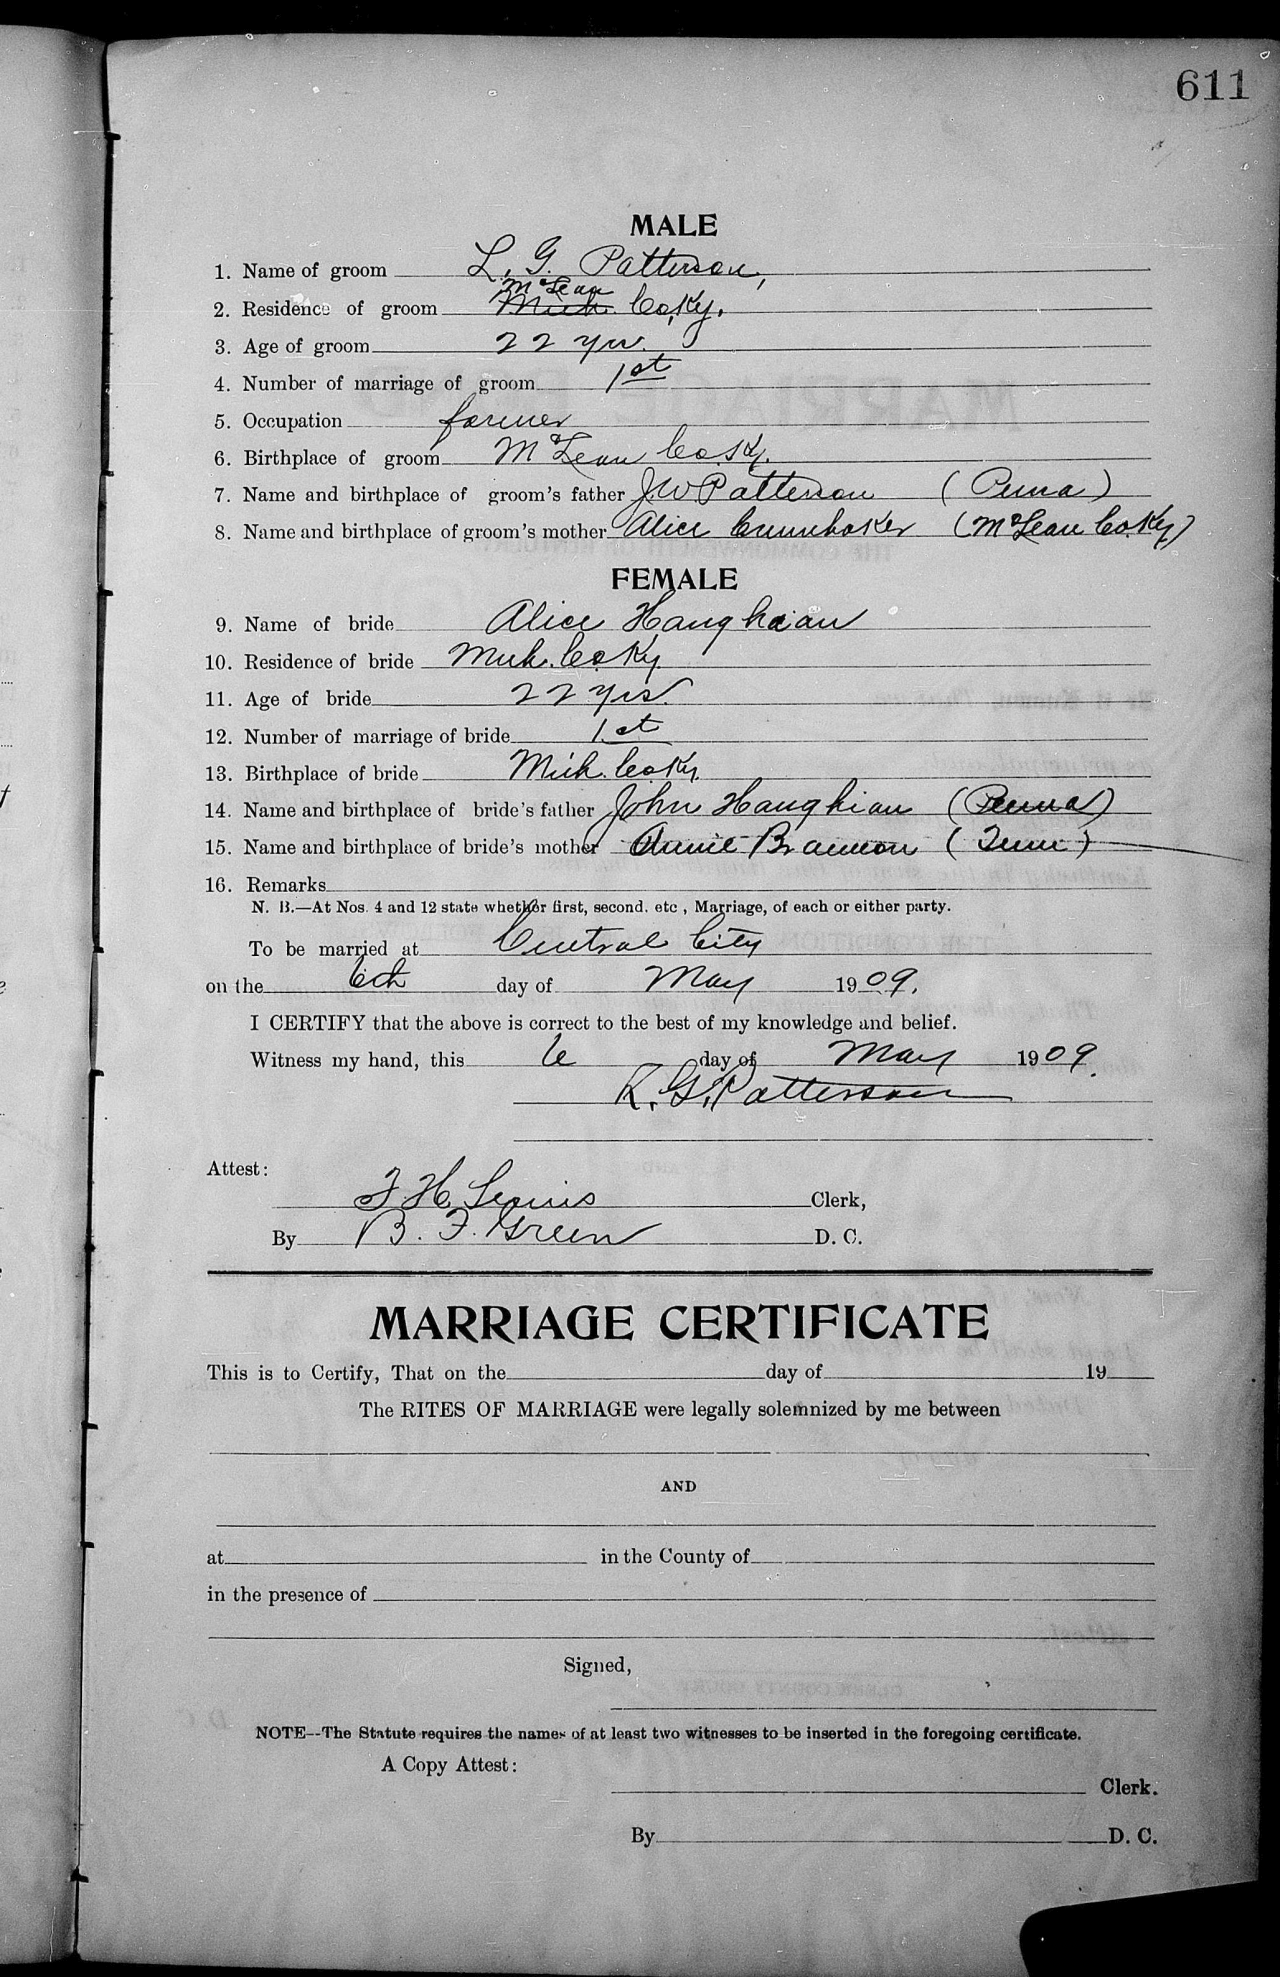 611
MALE
1. Name of groom L. G. Patterson,
McLean
2. Residence of groom Muh. Co. Ky.
3. Age of groom 22 yrs.
4. Number of marriage of groom 1st
5. Occupation farmer
6. Birthplace of groom McLean Co. Ky.
7. Name and birthplace of groom's father J. W. Patterson (Penna)
8. Name and birthplace of groom's mother Alice (McLean Co. Ky)
FEMALE
9. Name of bride Alice Haughian
10. Residence of bride Muh. Co Ky.
11. Age of bride 22 yrs.
12. Number of marriage of bride 1st
13. Birthplace of bride Muh. Co Ky
14. Name and birthplace of bride's father John Haughian (Penna)
15. Name and birthplace of bride's mother Annie Brannon (Tenn)
16. Remarks
N. B.—At Nos. 4 and 12 state whether first, second, etc., Marriage, of each or either party.
To be married at Central City
on the 6th day of May 1909.
I CERTIFY that the above is correct to the best of my knowledge and belief.
Witness my hand, this 6 day of May 1909.
G. Patterson
Attest:
Clerk,
By B. F. Green D. C.
MARRIAGE CERTIFICATE
This is to Certify, That on the day of 19
The RITES OF MARRIAGE were legally solemnized by me between
AND
at in the County of
in the presence of
Signed,
NOTE--The Statute requires the names of at least two witnesses to be inserted in the foregoing certificate.
A Copy Attest:
Clerk.
By D. C.